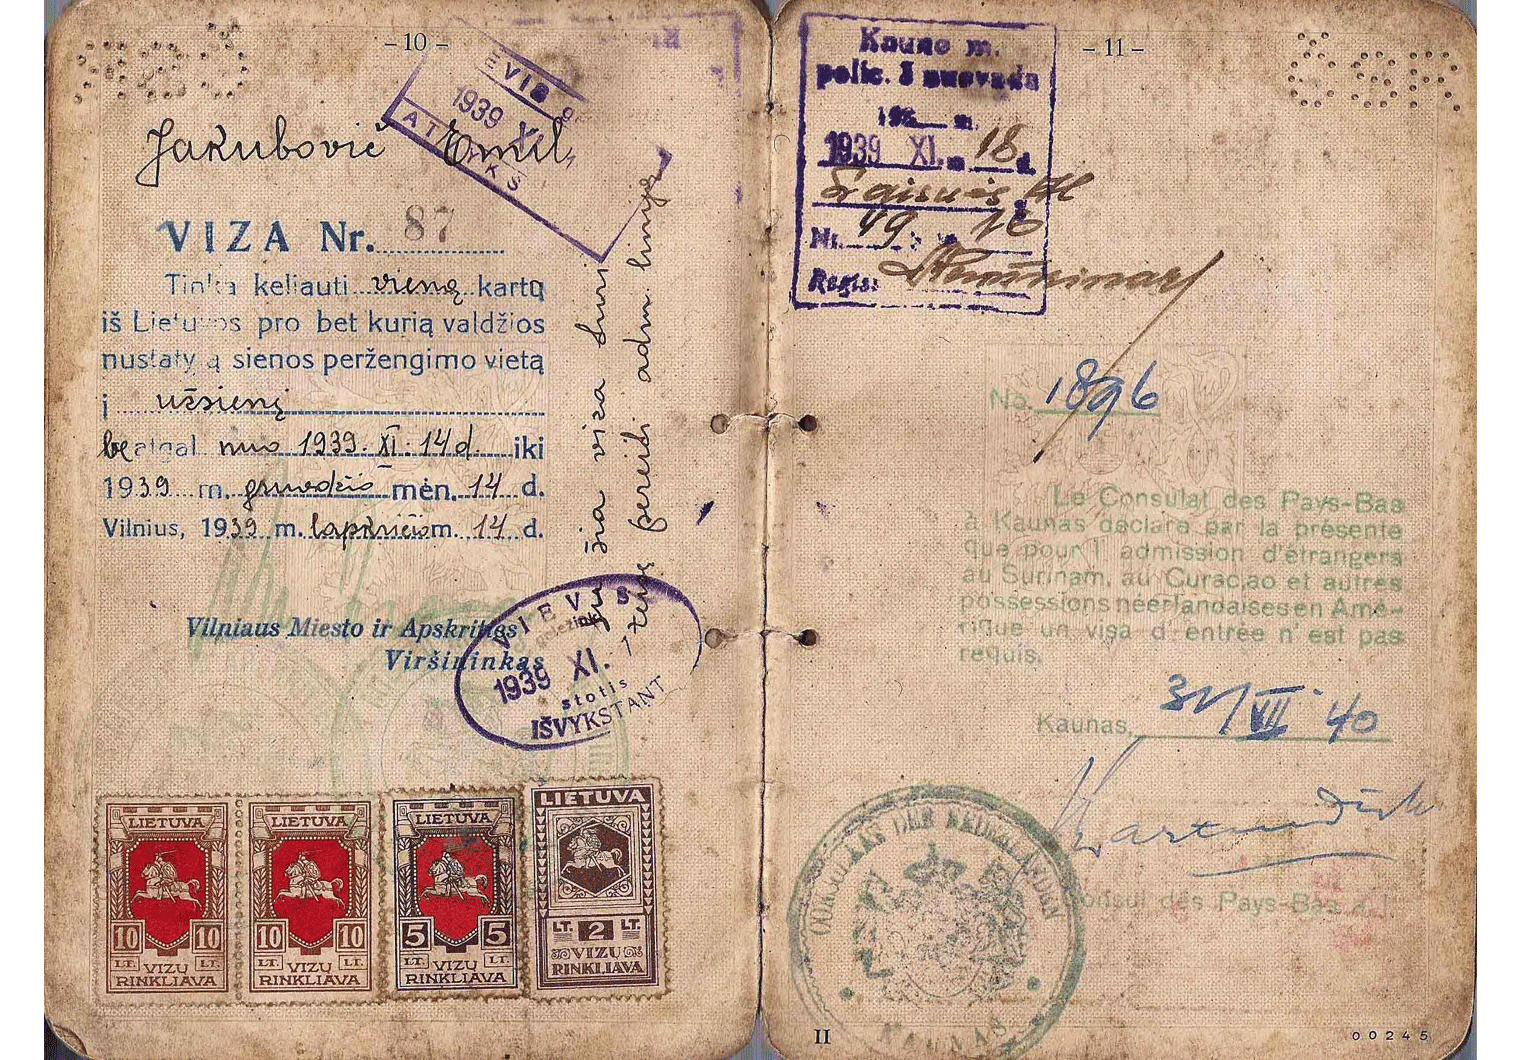 – 10 –
1939 XI
ATVYKS
Jakubovič Emil
VIZA Nr. 87
Tinka keliauti vieną kartą
iš Lietuvos pro bet kurią valdžios
nustatytą sienos peržengimo vietą
į užsienį
be atgal nuo 1939. XI. 14 d. iki
1939 m. gruodžio mėn. 14 d.
Vilnius, 1939 m. lapkričio m. 14 d.
Vilniaus Miesto ir Apskrities
Viršininkas
Su šia viza turi
teisę pereiti adm. liniją
VIEVIS
geležink.
1939 XI.
stotis
IŠVYKSTANT
LIETUVA
10 10
LT. LT.
VIZŲ
RINKLIAVA
LIETUVA
10 10
LT. LT.
VIZŲ
RINKLIAVA
LIETUVA
5 5
LT. LT.
VIZŲ
RINKLIAVA
LIETUVA
LT. 2 LT.
VIZŲ
RINKLIAVA
– 11 –
Kauno m.
polic. I nuovada
193 m.
1939 XI. m. 18 d.
Nr. 49 16
Regis.
No. 1896
Le Consulat des Pays-Bas
à Kaunas déclare par la présente
que pour l'admission d'étrangers
au Surinam, au Curaçao et autres
possessions néerlandaises en Amé-
rique un visa d'entrée n'est pas
requis.
Kaunas, 31/VII '40
Consul des Pays-Bas a.i.
CONSULAAT DER NEDERLANDEN
KAUNAS
II
00245